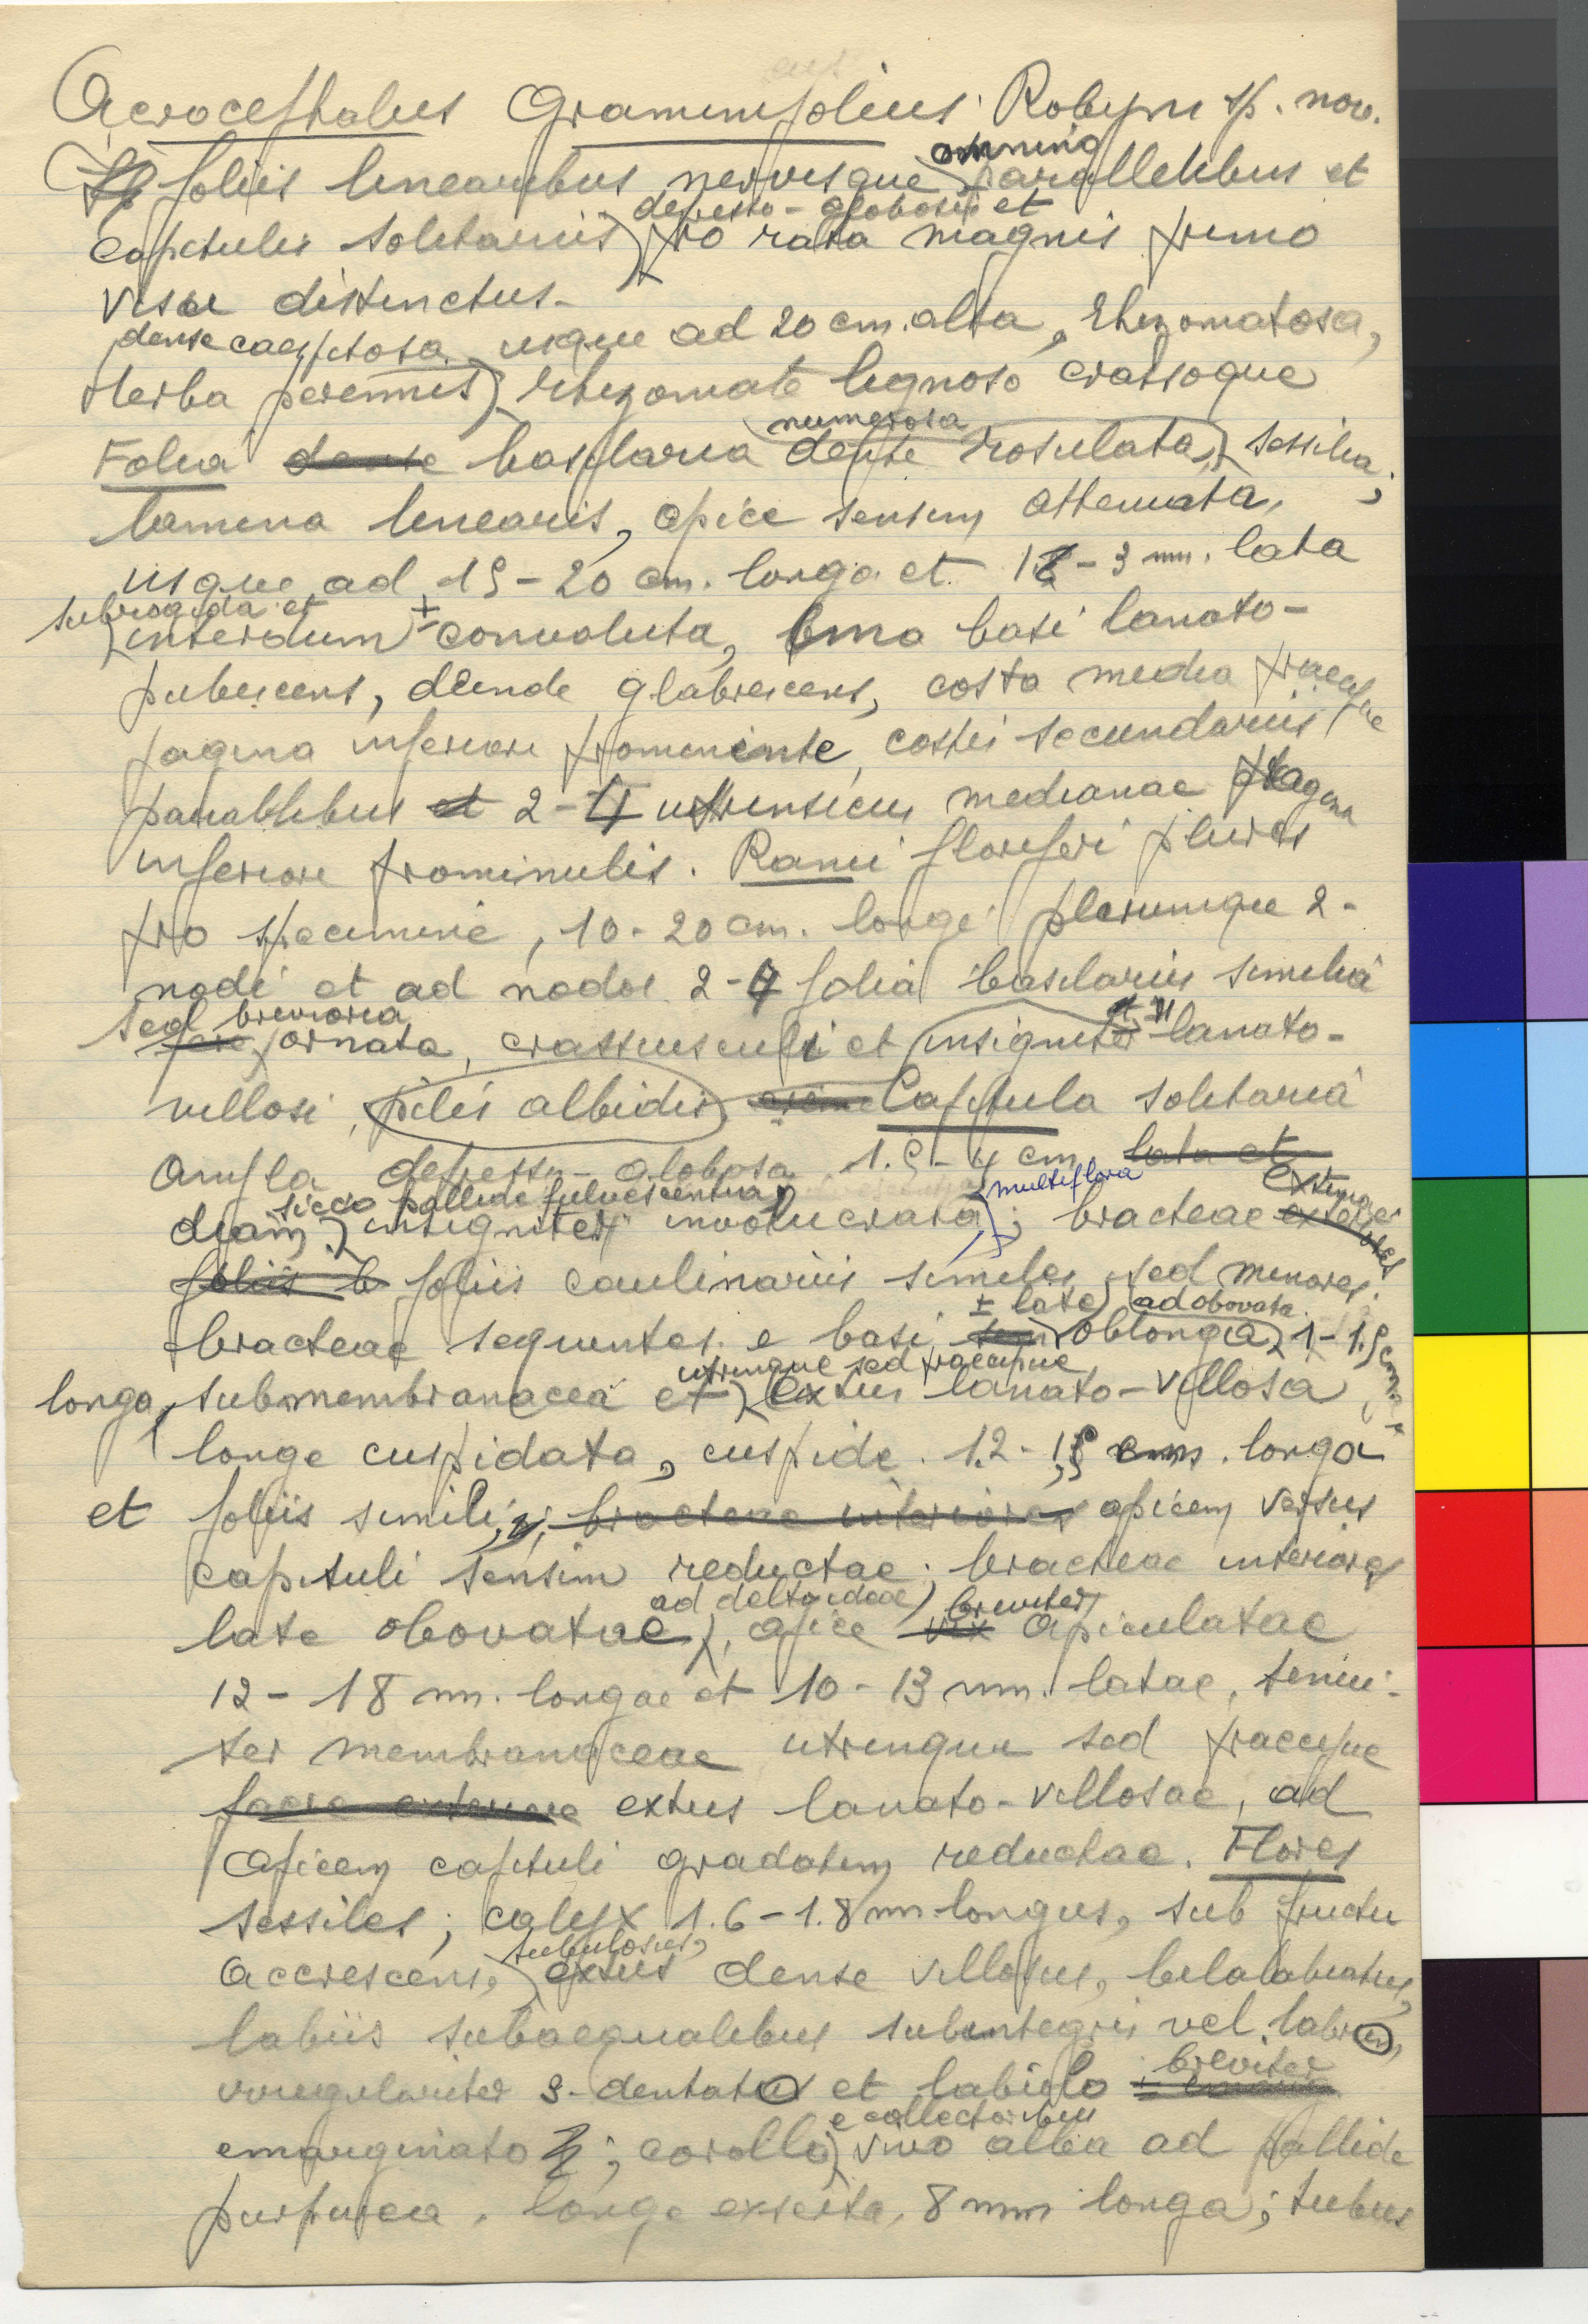 Acrocephalus Graminifolius Robyns sp. nov.
foliis linearibus nervisque omnino parallelibus et
capitulis solitariis depresso-globosis et pro rata magnis primo
visu distinctus.
Herba perennis dense caespitosa usque ad 20 cm. alta, rhizomatosa,
rhizomate lignoso crassoque
Folia dense basilaria numerosa dense rosulata, sessilia;
lamina linearis, apice sensim attenuata,
usque ad 15-20 cm. longa et 1-3 mm. lata
subrigida et interdum ± convoluta, ima basi lanato-
pubescens, deinde glabrescens, costa media praecipue
pagina inferiore prominente, costis secundariis
parallelibus et 2-4 utrinsecus medianae pagina
inferiore prominulis. Rami floriferi plures
pro specimine, 10-20 cm. longi plerumque 2-
nodi et ad nodos 2-4 folia basilariis similia
sed breviora ornata, crassiusculi et insigniter lanato-
villosi, pilis albidis Capitula solitaria
ampla depresso-globosa 1.5-4 cm. lata et
diam, sicco pallide fulvescentia, insigniter involucrata, multiflora; bracteae extimae
foliis b foliis caulinariis similes, sed minores;
bracteae sequentes e basi ± late oblonga ad obovata, 1-1.5 cm.
longa, submembranacea et utrinque sed praecipue extus lanato-villosa,
longe cuspidata, cuspide 1.2- cm. longa
et foliis simili, bracteae interiores apicem versus
capituli sensim reductae; bracteae interiores
late obovatae ad deltoideae, apice vix breviter apiculatae
12-18 mm. longae et 10-13 mm. latae, tenui-
ter membranaceae utrinque sed praecipue
extus lanato-villosae, ad
apicem capituli gradatim reductae. Flores
sessiles; calyx 1.6-1.8 mm longus, sub fructu
accrescens, tubulosus, extus dense villosus, bilabiatus,
labiis subaequalibus subintegris vel labro
irregulariter 3-dentato et labiolo breviter
emarginato; corolla e collectoribus vivo alba ad pallide
purpurea, longe exserta, 8 mm longa; tubus